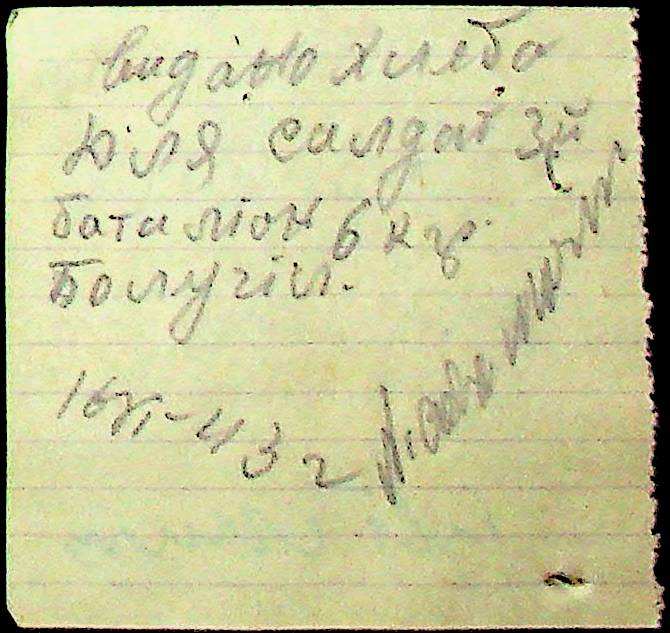 видано хлеба
для салдат 3й
баталіон 6 кг.
Болугіл.
16/VI-43 г